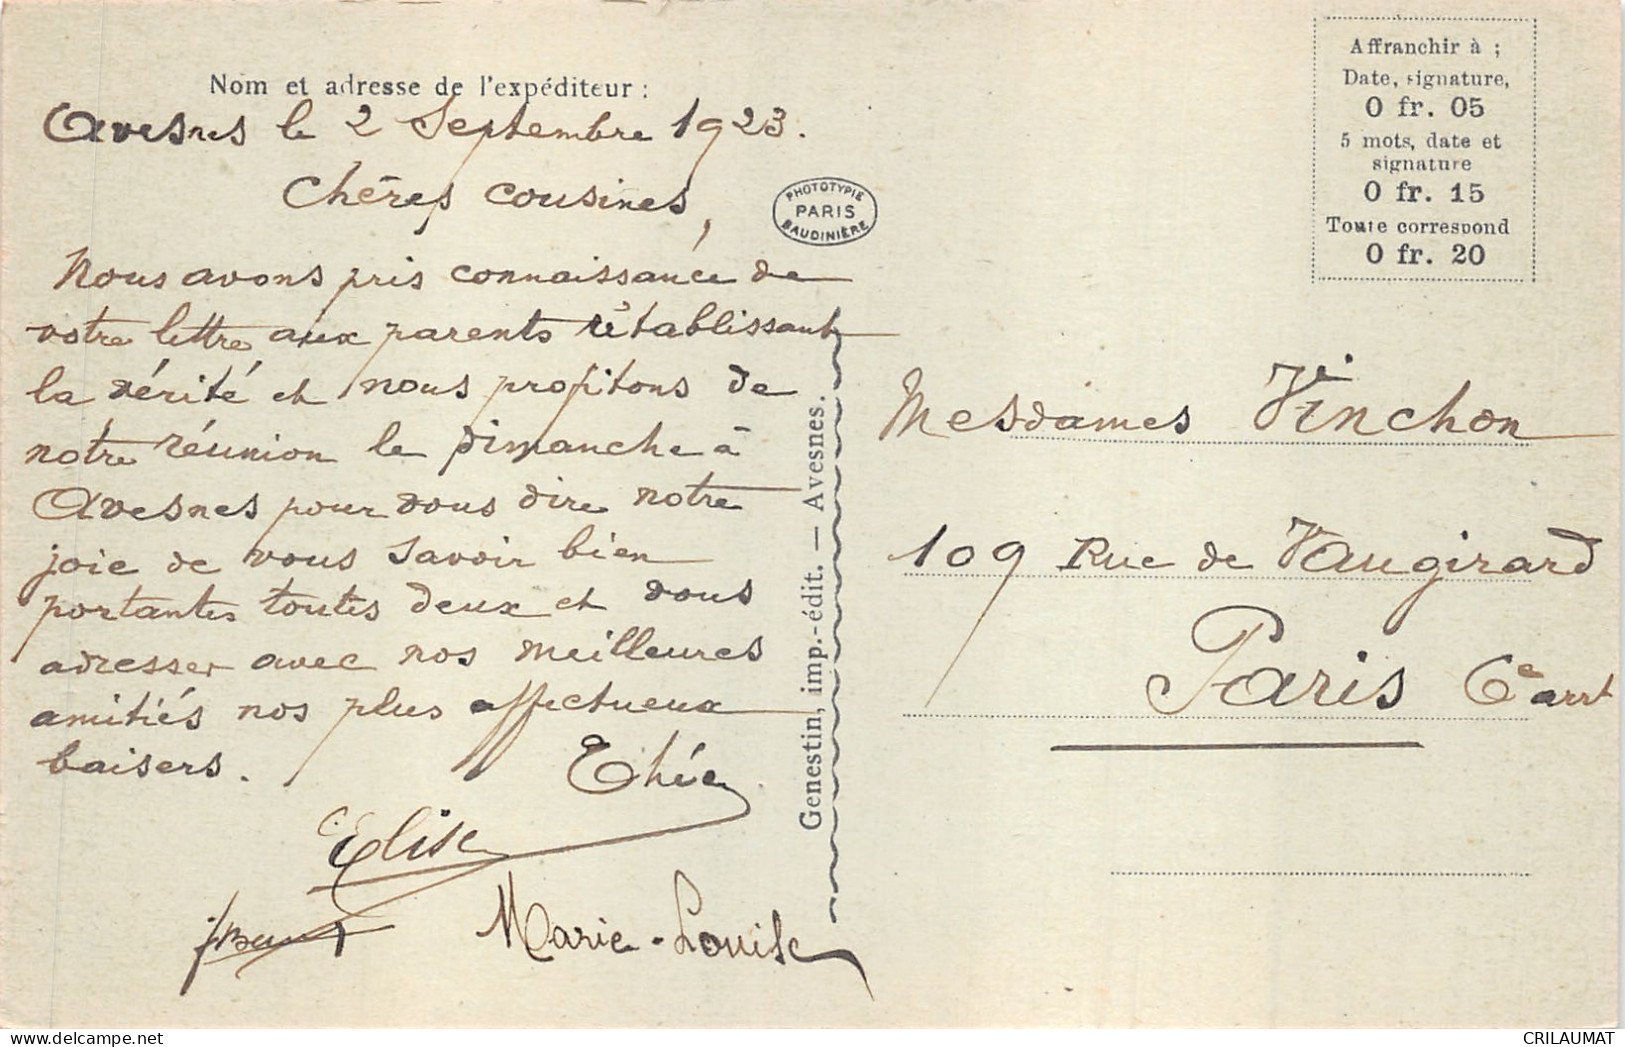 Nom et adresse de l'expéditeur :
Avesnes le 2 Septembre 1923.
Chères cousines,
Nous avons pris connaissance de
votre lettre aux parents rétablissant
la vérité et nous profitons de
notre réunion le Dimanche à
Avesnes pour vous dire notre
joie de vous savoir bien
portantes toutes deux et vous
adresser avec nos meilleures
amitiés nos plus affectueux
baisers.
Elise
Marie-Louise
PHOTOTYPIE
PARIS
BAUDINIÈRE
Genestin, imp.-édit. — Avesnes.
Affranchir à ;
Date, signature,
0 fr. 05
5 mots, date et
signature
0 fr. 15
Toute correspond
0 fr. 20
Mesdames Vinchon
109 Rue de Vaugirard
Paris 6e arrt
CRILAUMAT